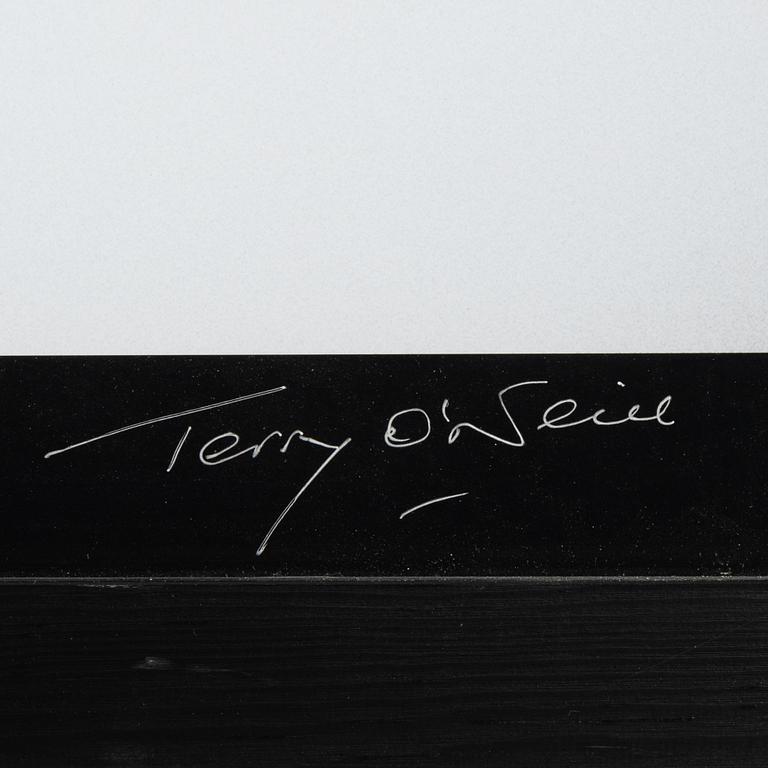 Terry O'Neill